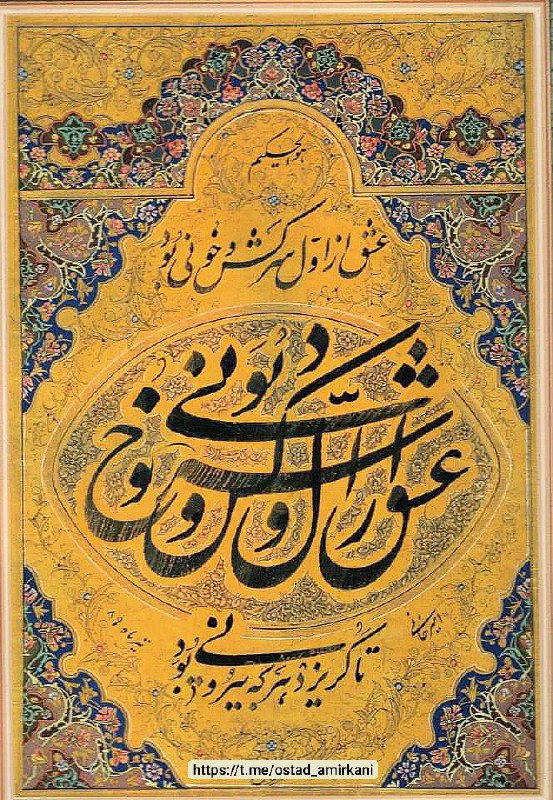 هوالحکیم
عشق از اول سرکش و خونی بود
عشق از اول سرکش و خونی بود
تا گریزد هر که بیرونی بود
https://t.me/ostad_amirkani